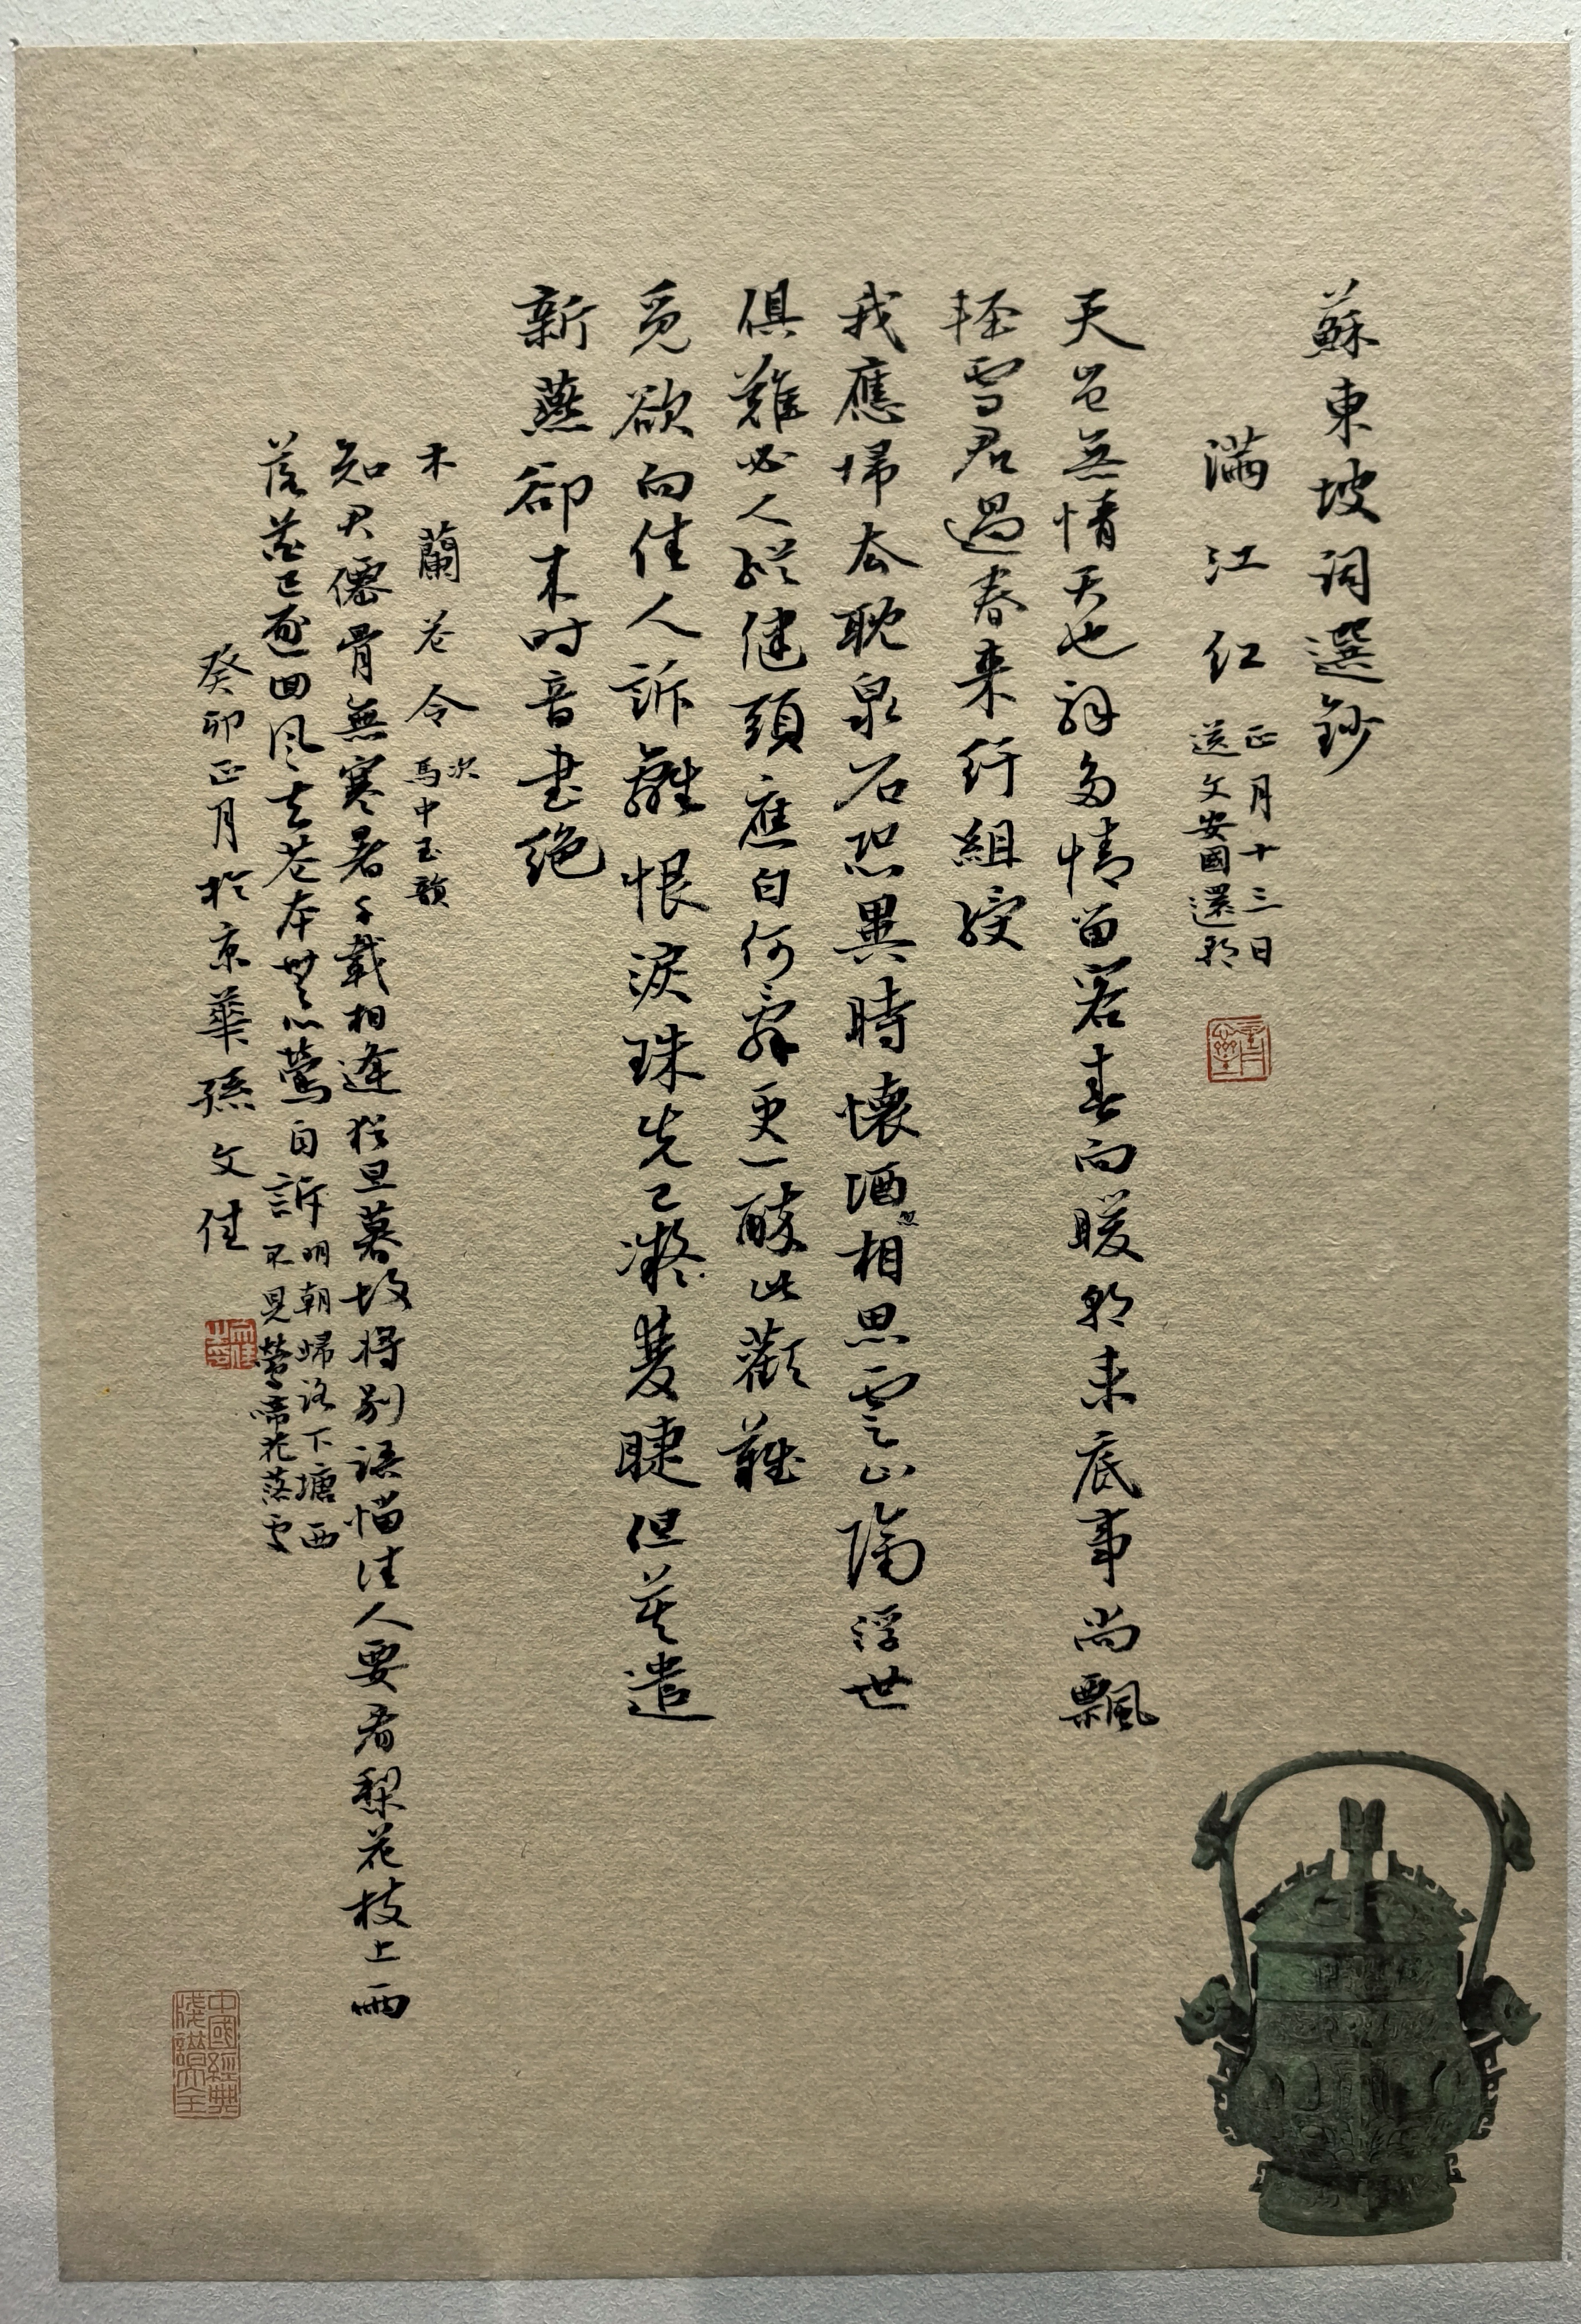 蘇東坡詞選鈔
滿江紅
正月十三日
送文安國還朝
天豈無情天也解多情留客春向暖朝來底事尚飄
輕雪君過春來紆組綬
我應歸去耽泉石恐異時懷酒忽相思雲山隔浮世
俱難必人縱健頭應白何辭更一醉此歡難
覓欲向佳人訴離恨淚珠先已凝雙睫但莫遣
新燕卻來時音書絕
木蘭花令
次
馬中玉韻
知君僊骨無寒暑千載相逢猶旦暮故將別語惱佳人要看梨花枝上雨
落花已逐回風去花本無心鶯自訴
明朝歸路下塘西
不見鶯啼花落處
癸卯正月於京華孫文佳
中國經典
箋譜大全